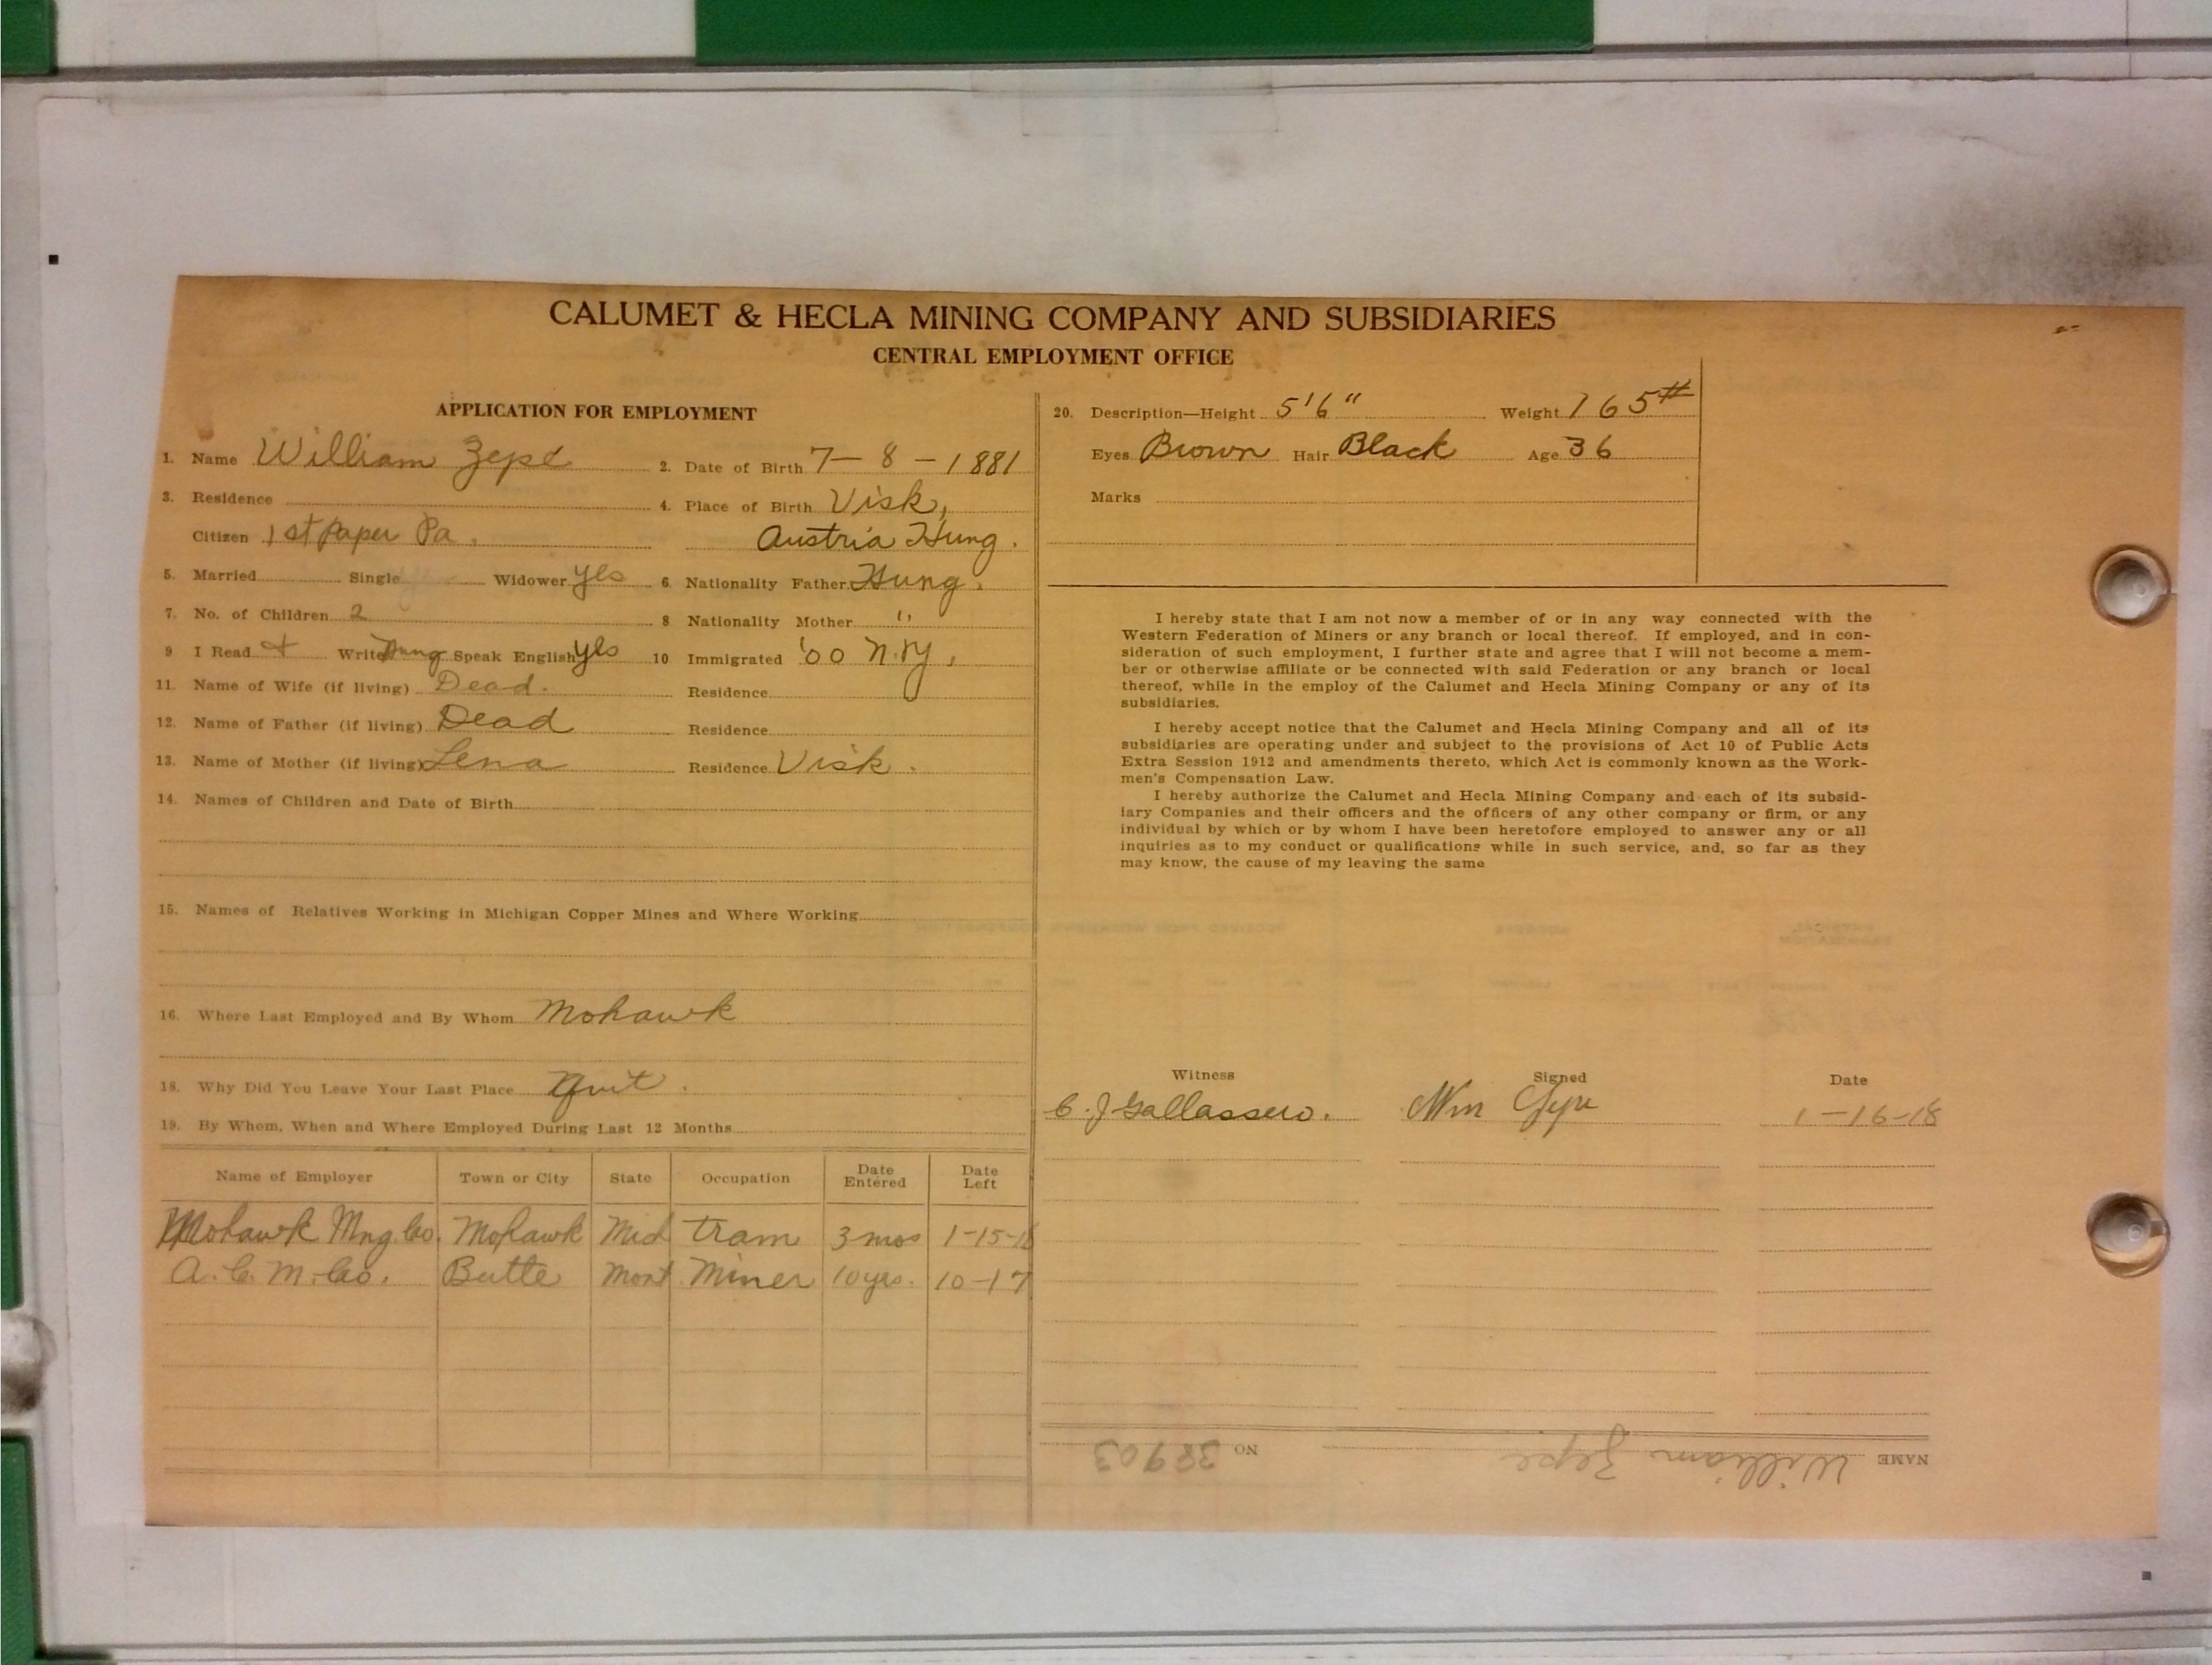 CALUMET & HECLA MINING COMPANY AND SUBSIDIARIES
CENTRAL EMPLOYMENT OFFICE
APPLICATION FOR EMPLOYMENT
1. Name William Zepe 2. Date of Birth 7-8-1881
3. Residence 4. Place of Birth Visk,
Citizen 1st paper Pa. Austria Hung.
5. Married Single Widower yes 6. Nationality Father Hung.
7. No. of Children 2 8 Nationality Mother "
9 I Read + Write Hung Speak English yes 10 Immigrated '00 N.Y.
11. Name of Wife (if living) Dead. Residence
12. Name of Father (if living) Dead Residence
13. Name of Mother (if living) Lena Residence Visk.
14. Names of Children and Date of Birth
15. Names of Relatives Working in Michigan Copper Mines and Where Working
16. Where Last Employed and By Whom Mohawk
18. Why Did You Leave Your Last Place Quit.
19. By Whom, When and Where Employed During Last 12 Months
Name of Employer Town or City State Occupation Date Entered Date Left
Mohawk Mng. Co. Mohawk Mich tram 3 mos 1-15-18
A. C. M. Co. Butte Mont Miner 10 yrs. 10-17
20. Description—Height 5'6" Weight 165#
Eyes Brown Hair Black Age 36
Marks
I hereby state that I am not now a member of or in any way connected with the
Western Federation of Miners or any branch or local thereof. If employed, and in con-
sideration of such employment, I further state and agree that I will not become a mem-
ber or otherwise affiliate or be connected with said Federation or any branch or local
thereof, while in the employ of the Calumet and Hecla Mining Company or any of its
subsidiaries.
I hereby accept notice that the Calumet and Hecla Mining Company and all of its
subsidiaries are operating under and subject to the provisions of Act 10 of Public Acts
Extra Session 1912 and amendments thereto, which Act is commonly known as the Work-
men's Compensation Law.
I hereby authorize the Calumet and Hecla Mining Company and each of its subsid-
iary Companies and their officers and the officers of any other company or firm, or any
individual by which or by whom I have been heretofore employed to answer any or all
inquiries as to my conduct or qualifications while in such service, and, so far as they
may know, the cause of my leaving the same
Witness Signed Date
C. J. Gallassero. Wm 1-16-18
NAME William Zepe NO 38903